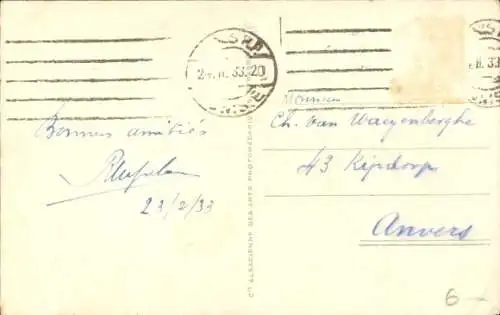 24.II.33.20
II.33
Bonnes amitiés
23/2/33
Cie ALSACIENNE DES ARTS PHOTOMÉCANIQUES
Monsieur
Ch. van Waeyenberghe
43 Kipdorp
Anvers
6-